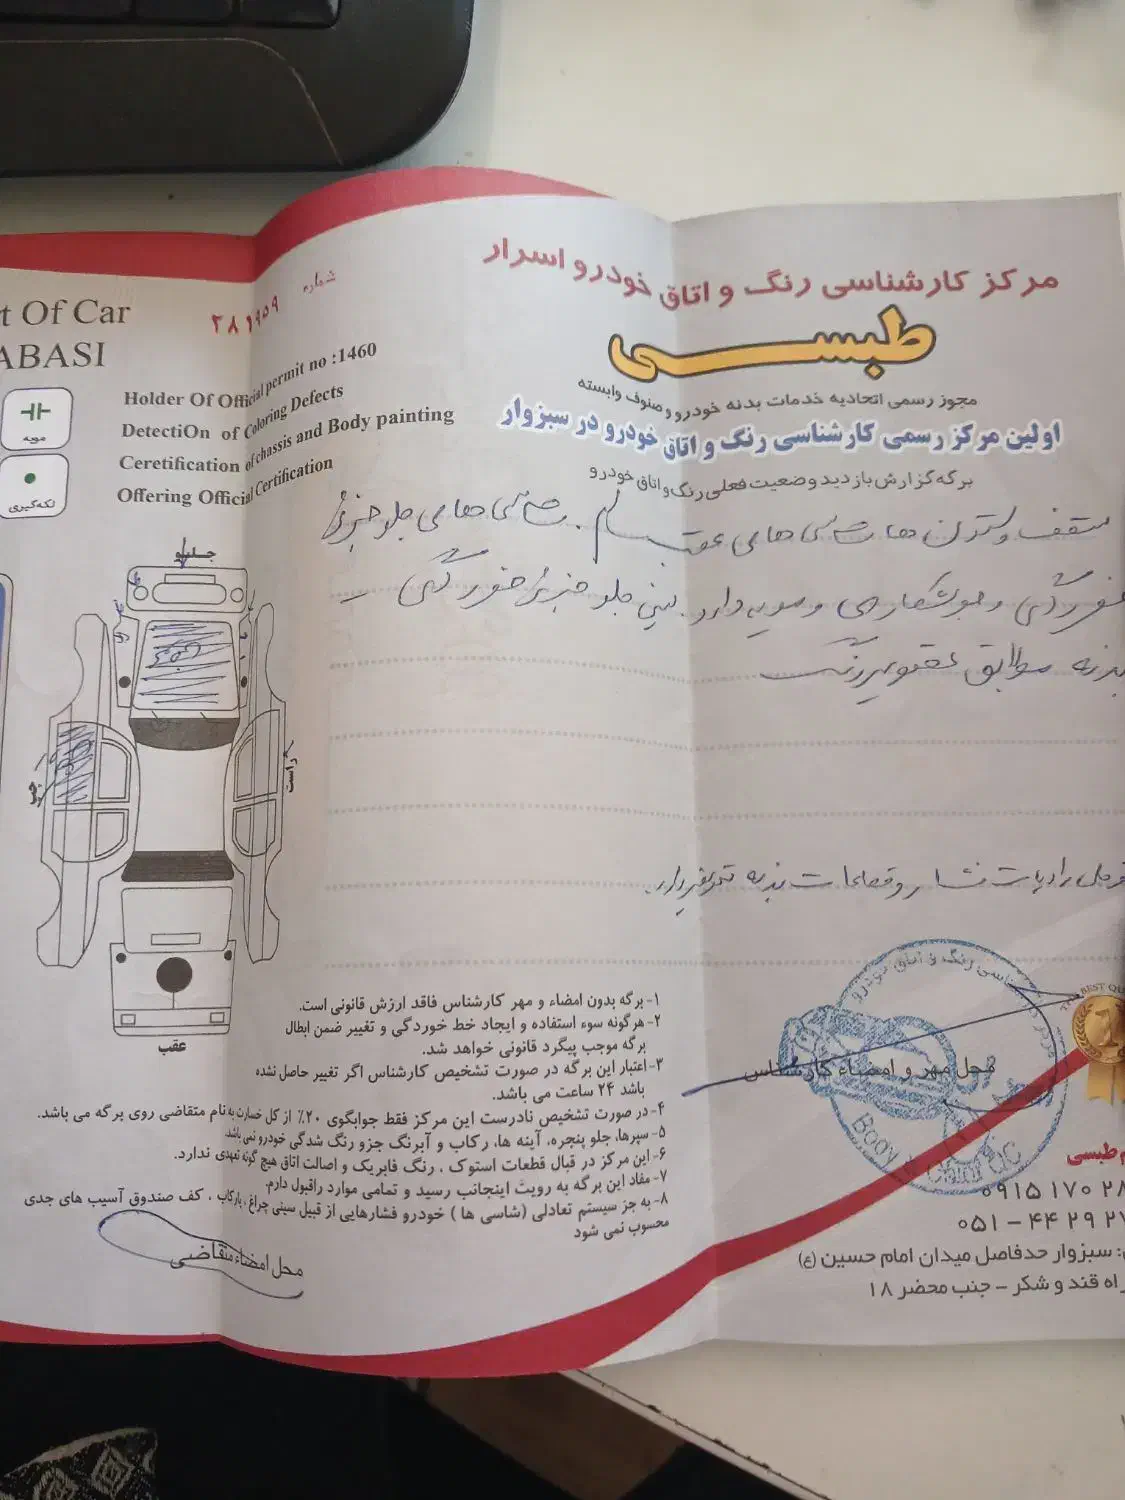 مرکز کارشناسی رنگ و اتاق خودرو اسرار
طبسی
مجوز رسمی اتحادیه خدمات بدنه خودرو و صنوف وابسته
اولین مرکز رسمی کارشناسی رنگ و اتاق خودرو در سبزوار
برگه گزارش بازدید وضعیت فعلی رنگ و اتاق خودرو
شماره
۲۸۱۹۵۹
t Of Car
ABASI
Holder Of Official permit no :1460
DetectiOn of Coloring Defects
Ceretification of chassis and Body painting
Offering Official Certification
مویه
لکه‌گیری
سقف و ستون ها شاسی های عقب سالم . شاسی های جلو جزئی
خوردگی و جوشکاری و مویه دارد . سینی جلو جزئی خوردگی
بدنه مطابق
جلو
راست
چپ
عقب
۱- برگه بدون امضاء و مهر کارشناس فاقد ارزش قانونی است.
۲- هرگونه سوء استفاده و ایجاد خط خوردگی و تغییر ضمن ابطال
برگه موجب پیگرد قانونی خواهد شد.
۳- اعتبار این برگه در صورت تشخیص کارشناس اگر تغییر حاصل نشده
باشد ۲۴ ساعت می باشد.
۴- در صورت تشخیص نادرست این مرکز فقط جوابگوی ۲۰٪ از کل خسارت به نام متقاضی روی برگه می باشد.
۵- سپرها، جلو پنجره، آینه ها، رکاب و آبرنگ جزو رنگ شدگی خودرو نمی باشد.
۶- این مرکز در قبال قطعات استوک ، رنگ فابریک و اصالت اتاق هیچ گونه تعهدی ندارد.
۷- مفاد این برگه به رویت اینجانب رسید و تمامی موارد را قبول دارم.
۸- به جز سیستم تعادلی (شاسی ها ) خودرو فشارهایی از قبیل سینی چراغ ، پارکاب ، کف صندوق آسیب های جدی
محسوب نمی شود
محل امضاء متقاضی
محل مهر و امضاء کارشناس
THE BEST QU
1
م طبسی
۰۹۱۵ ۱۷۰ ۲۸
۰۵۱ – ۴۴ ۲۹ ۲۷
: سبزوار حدفاصل میدان امام حسین (ع)
راه قند و شکر – جنب محضر ۱۸